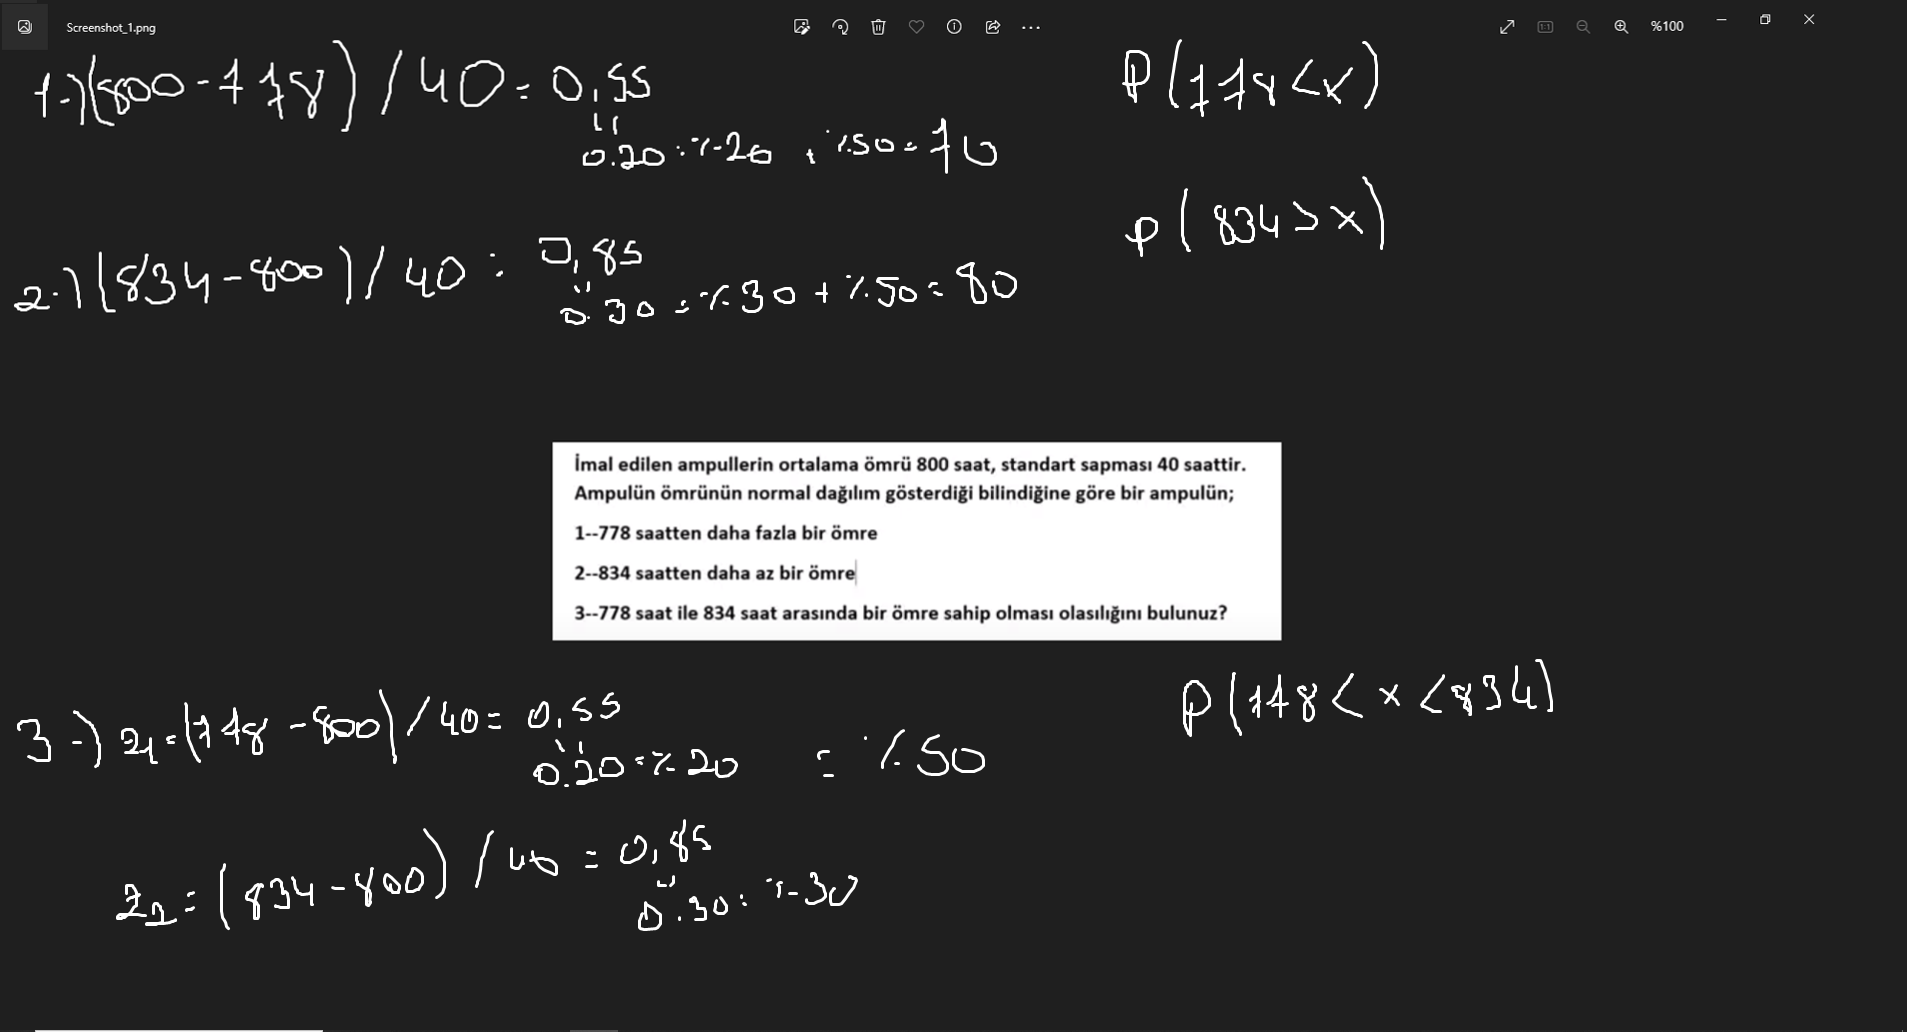 Screenshot_1.png
%100
1-)(800-778)/40=0,55
P(778<x)
0.20=%20+%50=70
P(834>x)
2-)(834-800)/40=0,85
0.30=%30+%50=80
İmal edilen ampullerin ortalama ömrü 800 saat, standart sapması 40 saattir.
Ampulün ömrünün normal dağılım gösterdiği bilindiğine göre bir ampulün;
1--778 saatten daha fazla bir ömre
2--834 saatten daha az bir ömre
3--778 saat ile 834 saat arasında bir ömre sahip olması olasılığını bulunuz?
P(778<x<834)
3-) z1=(778-800)/40=0,55
0.20=%20 = %50
z2=(834-800)/40=0,85
0.30=%30